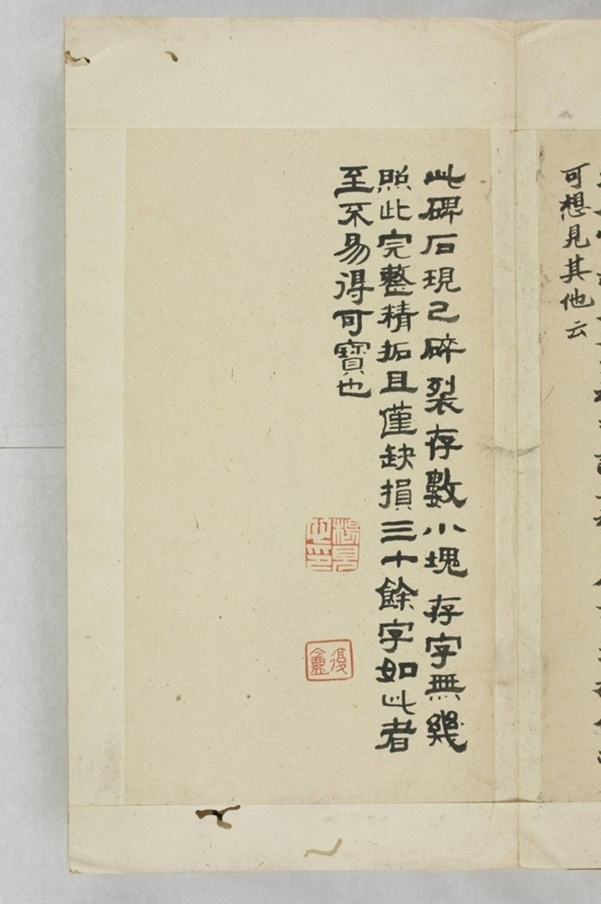 可想見其他云
此碑石現已碎裂存數小塊存字無幾
照此完整精拓且僅缺損三十餘字如此者
至不易得可寶也
復盦